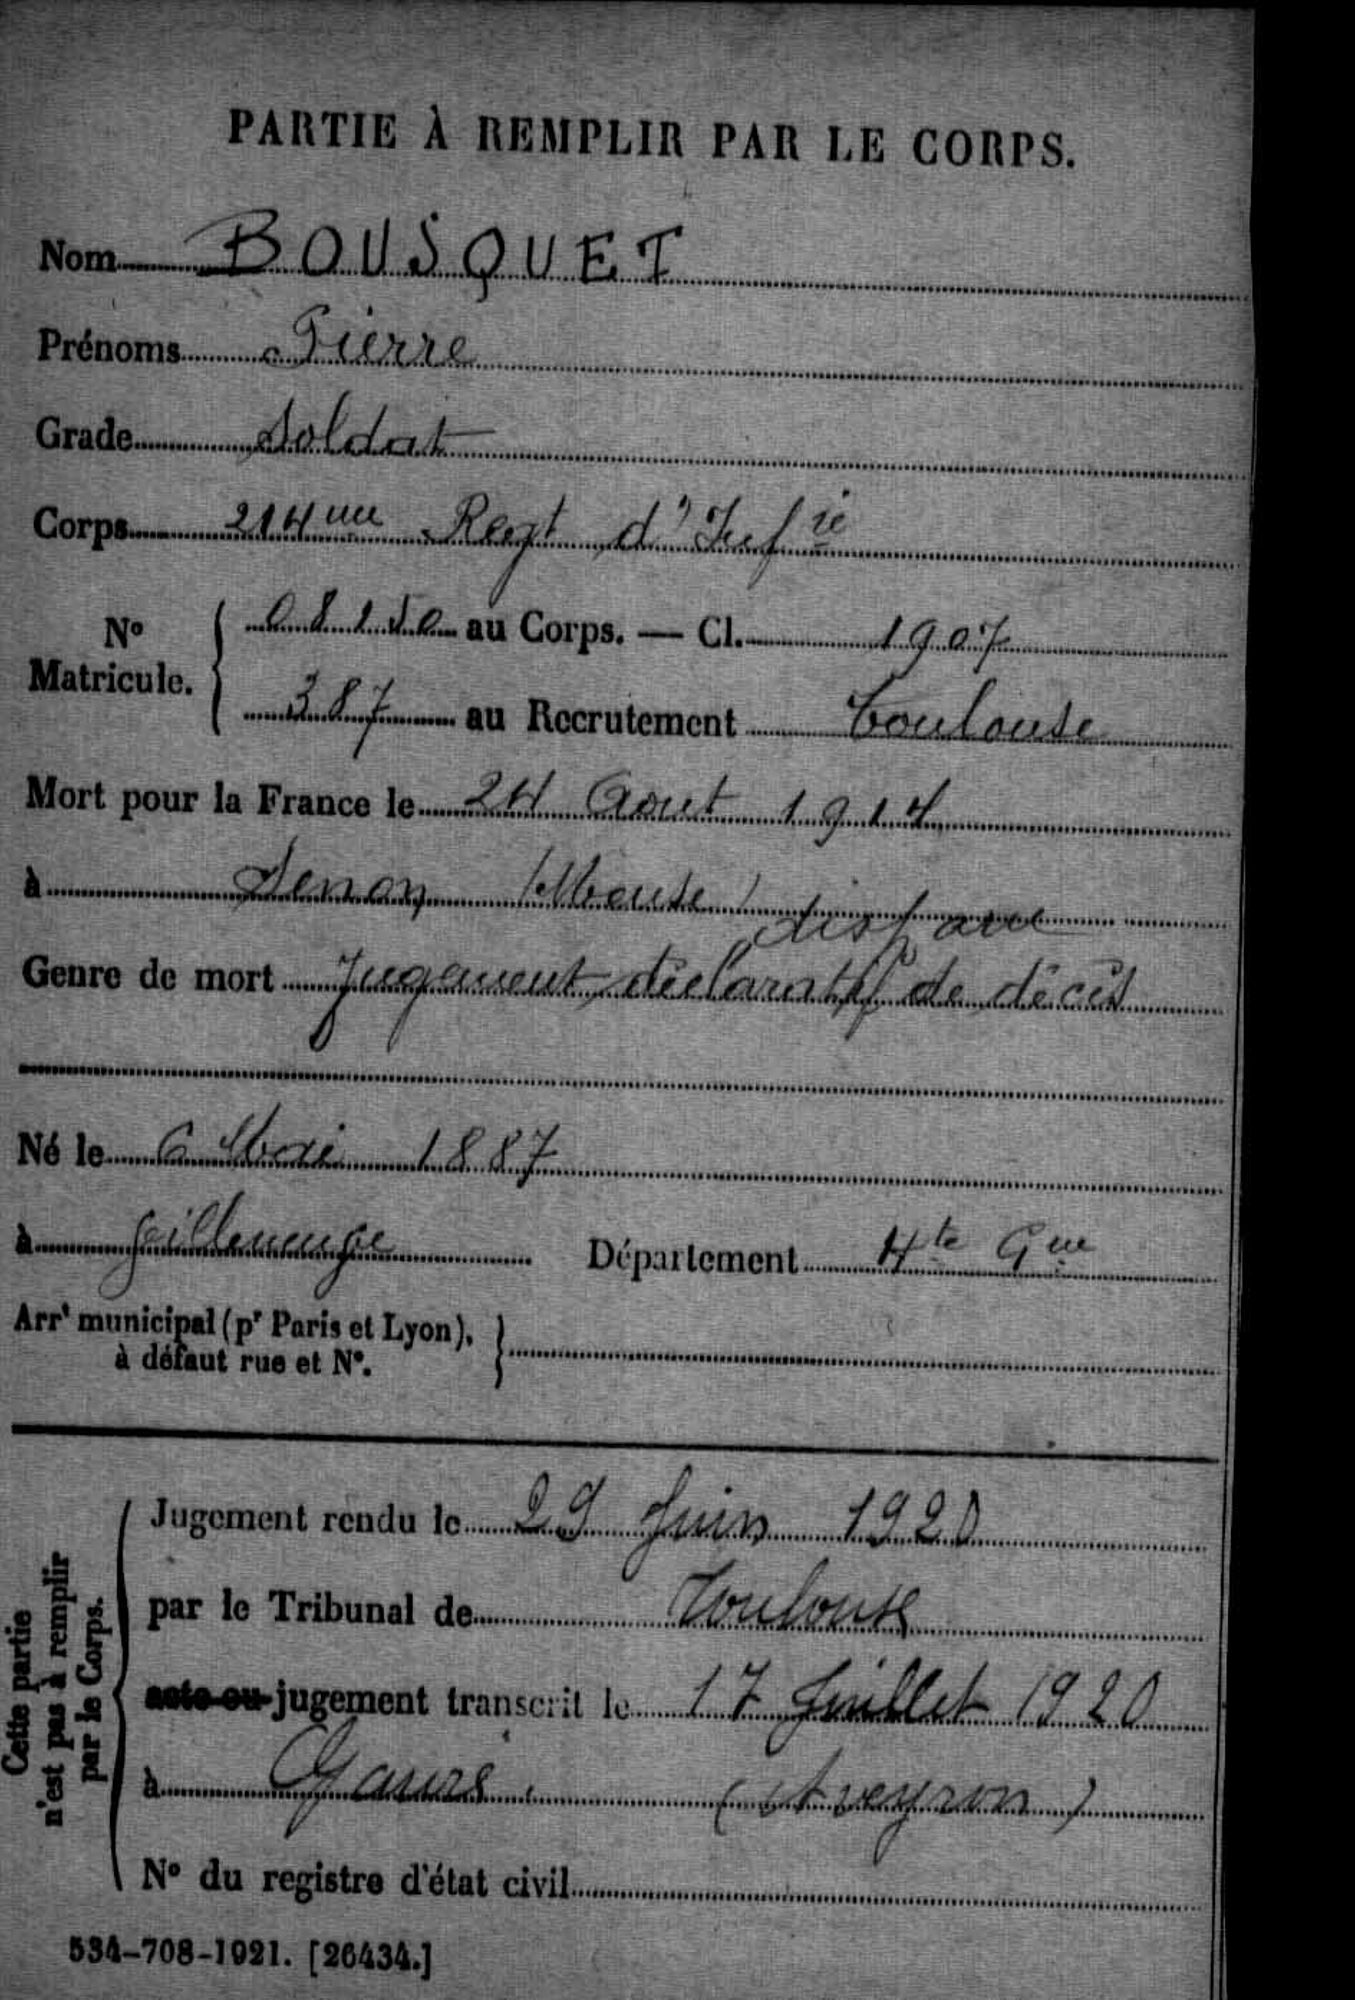 PARTIE À REMPLIR PAR LE CORPS.
Nom BOUSQUET
Prénoms Pierre
Grade Soldat
Corps 214me Regt d'Infie
No Matricule. { 08150 au Corps. — Cl. 1907
387 au Recrutement Toulouse
Mort pour la France le 24 Aout 1914
à Senon (Meuse)
disparu
Genre de mort Jugement déclaratif de décès
Né le 6 Mai 1887
à Département Hte Gne
Arrt municipal (pr Paris et Lyon), à défaut rue et No. }
Cette partie n'est pas à remplir par le Corps.
Jugement rendu le 29 Juin 1920
par le Tribunal de Toulouse
acte ou jugement transcrit le 17 Juillet 1920
à (Aveyron)
No du registre d'état civil
534-708-1921. [26434.]